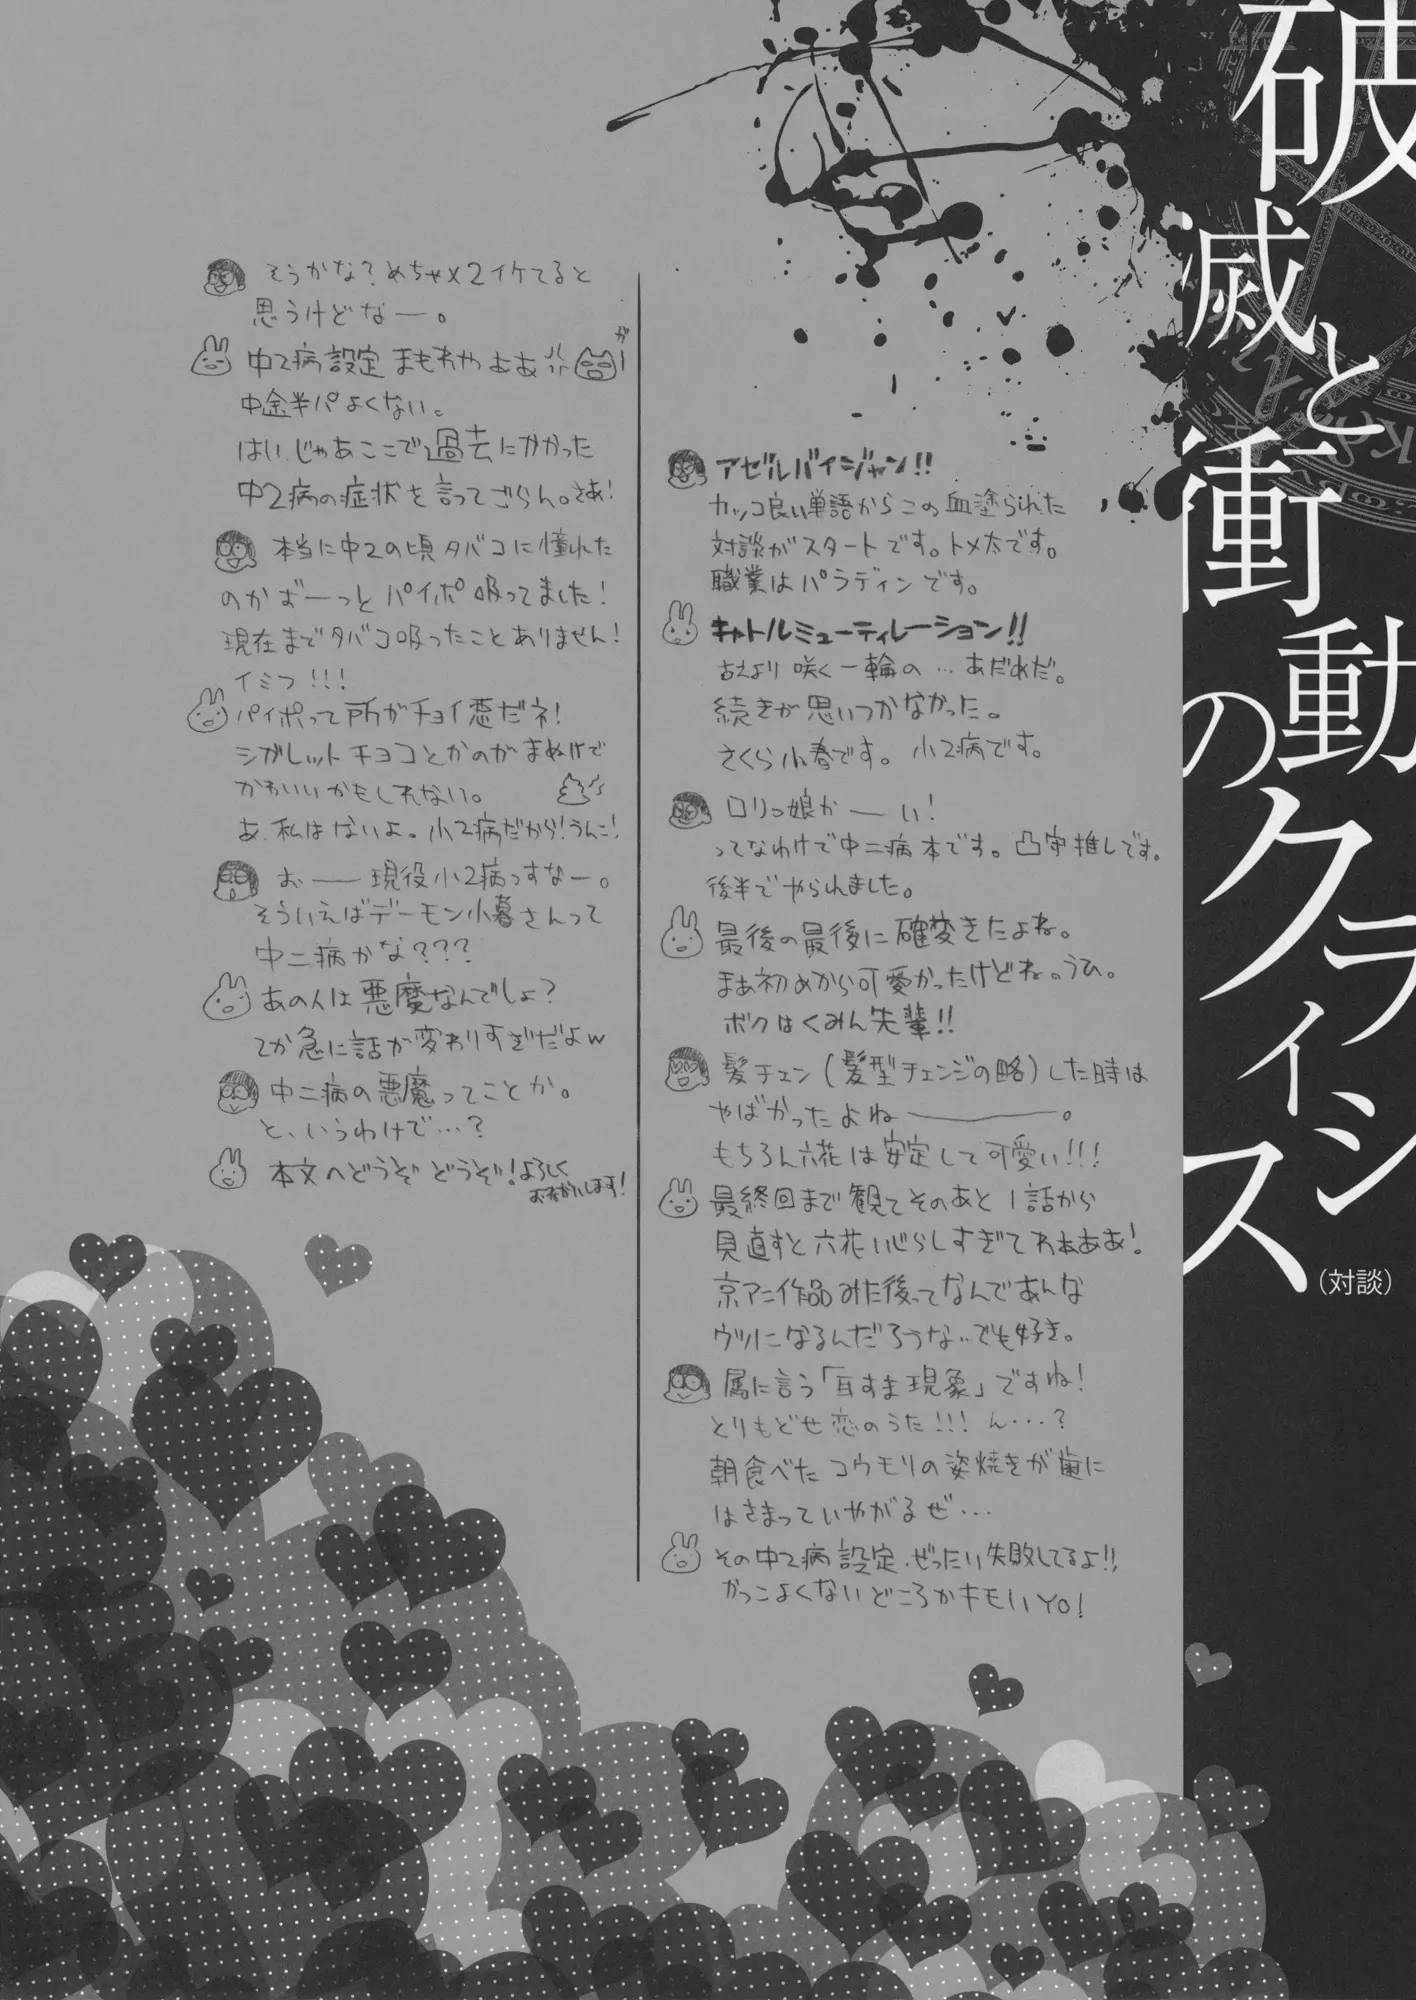 破滅と衝動のクライシス
(対談)
アゼルバイジャン!!
カッコ良い単語からこの血塗られた
対談がスタートです。トメ太です。
職業はパラディンです。
キャトルミューティレーション!!
古えより咲く一輪の…あだれだ。
続きが思いつかなかった。
さくら小春です。小2病です。
ロリっ娘かーい!
ってなわけで中二病本です。凸守推しです。
後半でやられました。
最後の最後に確変きたよね。
まあ初めから可愛かったけどね。うひ。
ボクはくみん先輩!!
髪チェン(髪型チェンジの略)した時は
やばかったよねー。
もちろん六花は安定して可愛い!!!
最終回まで観てそのあと1話から
見直すと六花いじらしすぎてわぁああ!
京アニ作品みた後ってなんであんな
ウツになるんだろうな..でも好き。
属に言う「耳すま現象」ですね!
とりもどせ恋のうた!!!ん…?
朝食べたコウモリの姿焼きが歯に
はさまっていやがるぜ…
その中2病設定、ぜったい失敗してるよ!!
かっこよくないどころかキモいYO!
そうかな?めちゃ×2イケてると
思うけどなー。
中2病設定まもれやぁぁあ
がー
中途半パよくない。
はいじゃあここで過去にかかった
中2病の症状を言ってごらん。さあ!
本当に中2の頃タバコに憧れた
のかずーっとパイポ吸ってました!
現在までタバコ吸ったことありません!
イミフ!!!
パイポって所がチョイ悪だネ!
シガレットチョコとかのがまぬけで
かわいいかもしれない。
あ、私はないよ。小2病だから!うんこ!
おー現役小2病っすなー。
そういえばデーモン小暮さんって
中二病かな???
あの人は悪魔なんでしょ?
てか急に話が変わりすぎだよw
中二病の悪魔ってことか。
と、いうわけで…?
本文へどうぞどうぞ!よろしく
おねがいします!